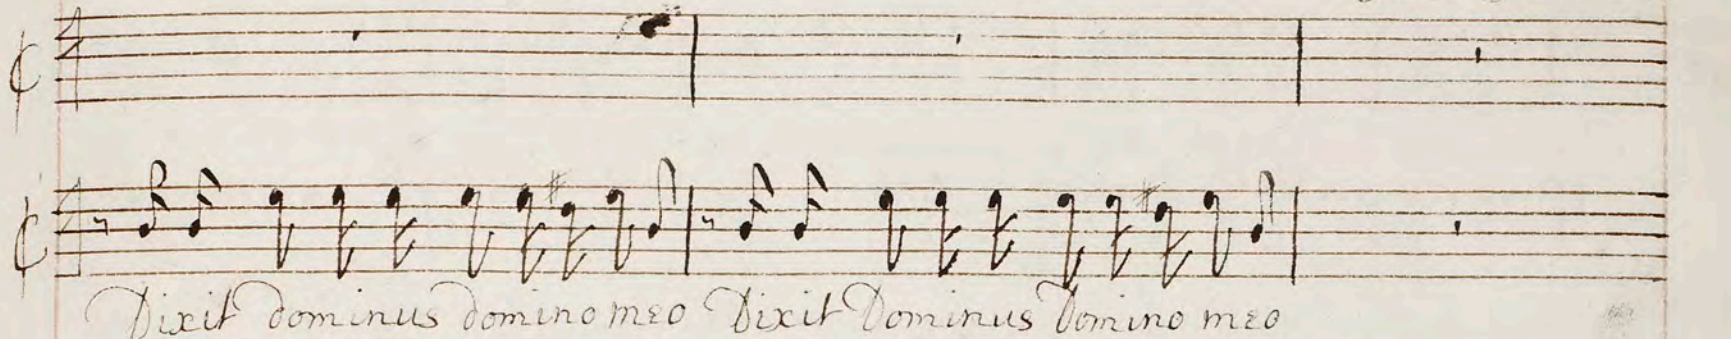 Dixit dominus domino meo Dixit Dominus Domino meo